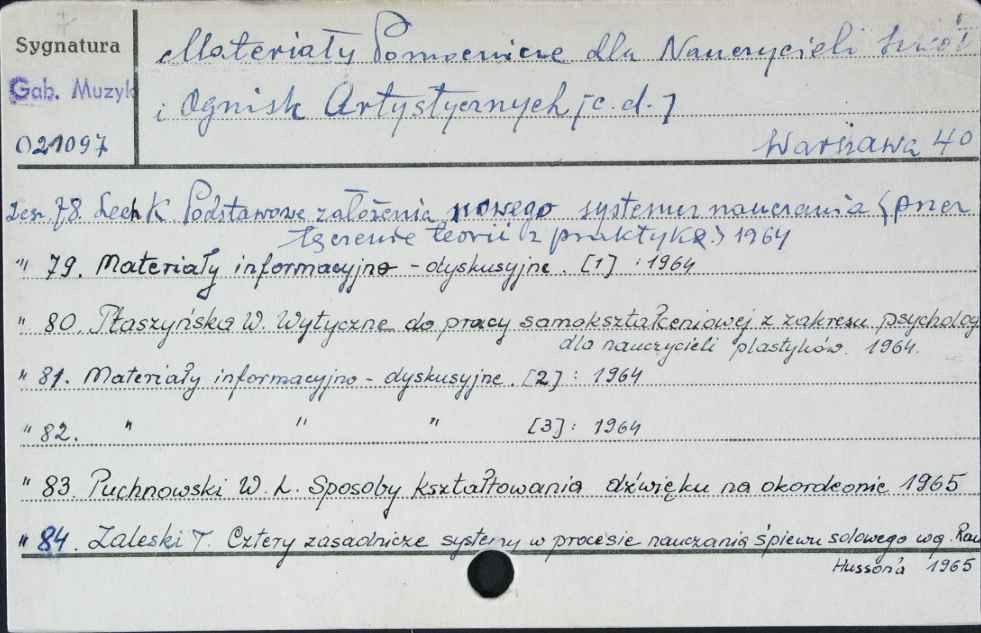 Sygnatura
Gab. Muzyk
021097
Materiały Pomocnicze dla Nauczycieli Szkół
i Ognisk Artystycznych [c.d.]
Warszawa 40
Zesz. 78. Lech K Podstawowe założenia nowego systemu nauczania (prze
łączenie teorii z praktyką) 1964
" 79. Materiały informacyjno - dyskusyjne. [1] : 1964
" 80. Ptaszyńska W. Wytyczne do pracy samokształceniowej z zakresu psycholog
dla nauczycieli plastyków. 1964.
" 81. Materiały informacyjno - dyskusyjne. [2] : 1964
" 82. " " " [3] : 1964
" 83. Puchnowski W. L. Sposoby kształtowania dźwięku na akordeonie 1965
" 84. Zaleski T. Cztery zasadnicze systemy w procesie nauczania śpiewu solowego wg. Rau
Husson'a 1965